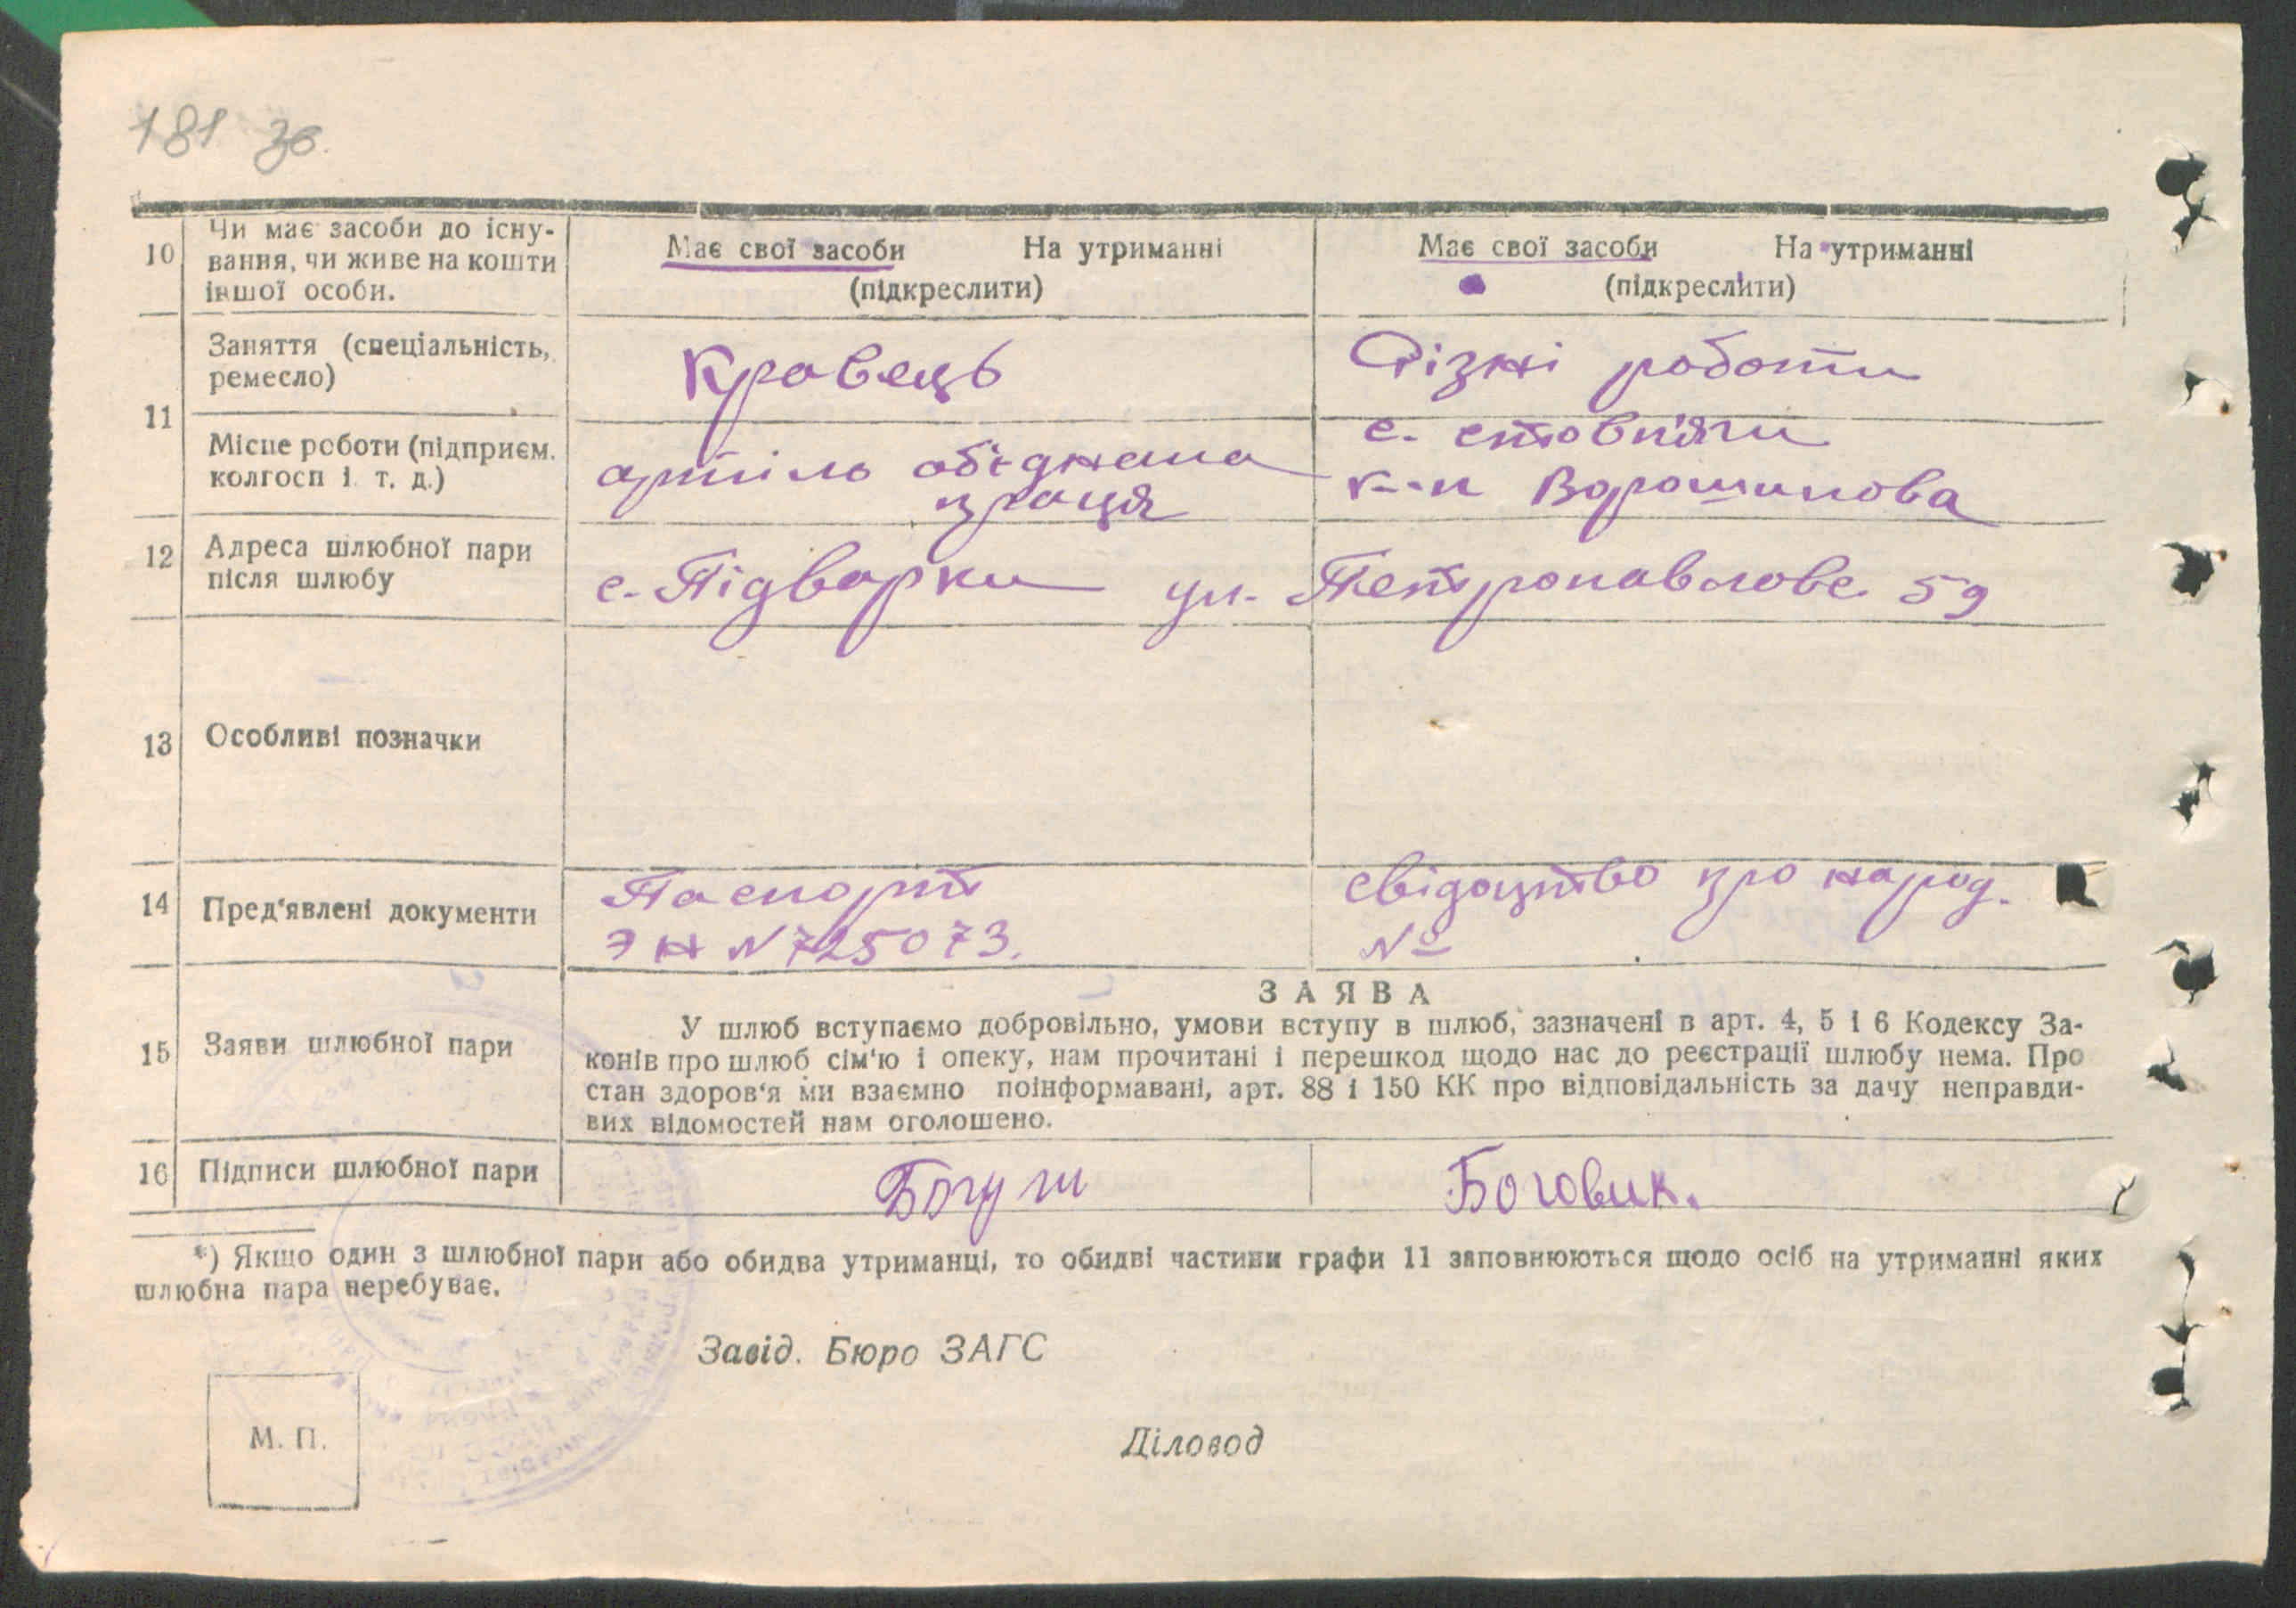 181 зв.
10 Чи має засоби до існу-
вання, чи живе на кошти
іншої особи.
Має свої засоби На утриманні
(підкреслити)
Має свої засоби На утриманні
(підкреслити)
11 Заняття (спеціальність,
ремесло)
Кравець
Різні роботи
Місце роботи (підприєм.
колгосп і т. д.)
артіль об'єднана
праця
с. стовп'яги
к-п Ворошилова
12 Адреса шлюбної пари
після шлюбу
с. Підварки ул. Петропавлове 59
13 Особливі позначки
14 Пред'явлені документи
Паспорт
ЭН N 725073.
свідоцтво про народ.
№
15 Заяви шлюбної пари
ЗАЯВА
У шлюб вступаємо добровільно, умови вступу в шлюб, зазначені в арт. 4, 5 і 6 Кодексу За-
конів про шлюб сім'ю і опеку, нам прочитані і перешкод щодо нас до реєстрації шлюбу нема. Про
стан здоров'я ми взаємно поінформавані, арт. 88 і 150 КК про відповідальність за дачу неправди-
вих відомостей нам оголошено.
16 Підписи шлюбної пари
Боговик.
*) Якщо один з шлюбної пари або обидва утриманці, то обидві частини графи 11 заповнюються щодо осіб на утриманні яких
шлюбна пара перебуває.
Завід. Бюро ЗАГС
М. П.
Діловод